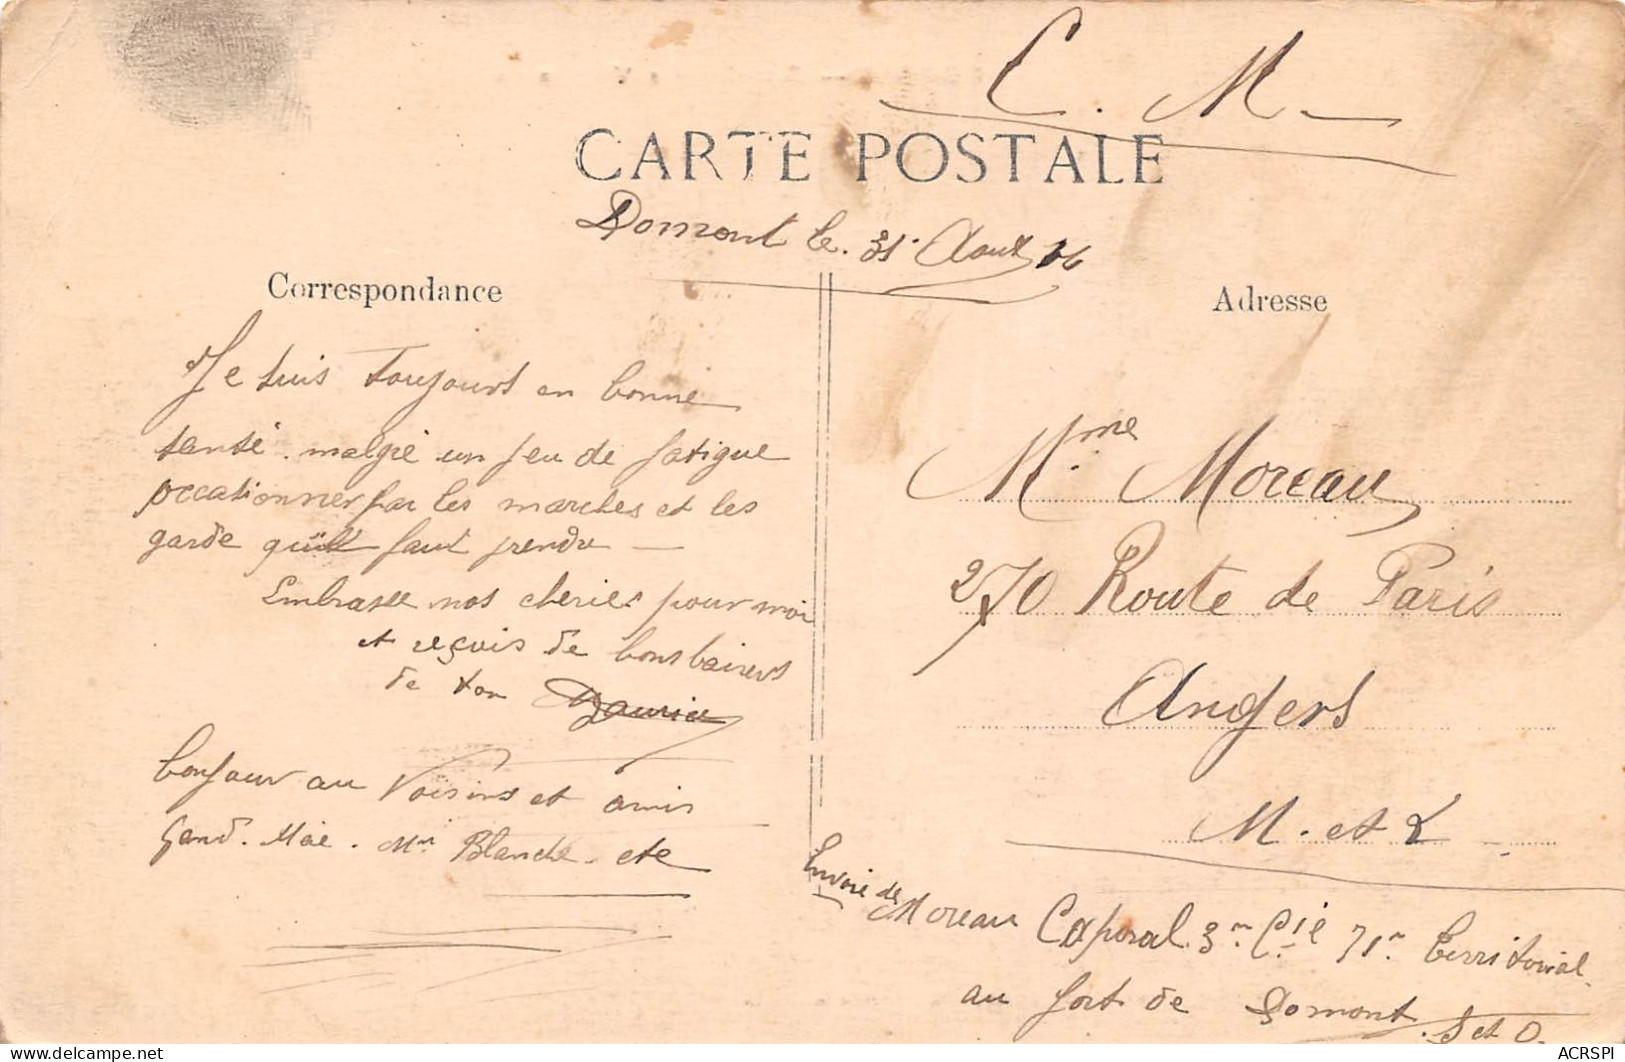 C. M.
CARTE POSTALE
Domont le 31 Aout 16
Correspondance
Je suis toujours en bonne
santé malgré un peu de fatigue
occationner par les marches et les
garde qu'il faut prendre
Embrasse nos cheries pour moi
et reçois de bons baisers
de ton Maurice
bonjour au Voisins et amis
Blanche etc
Adresse
Mme Moreau
270 Route de Paris
Angers
M. et L
Envoie de
Moreau Caporal 3m Cie 71m territorial
au fort de Domont S et O.
ACRSPI